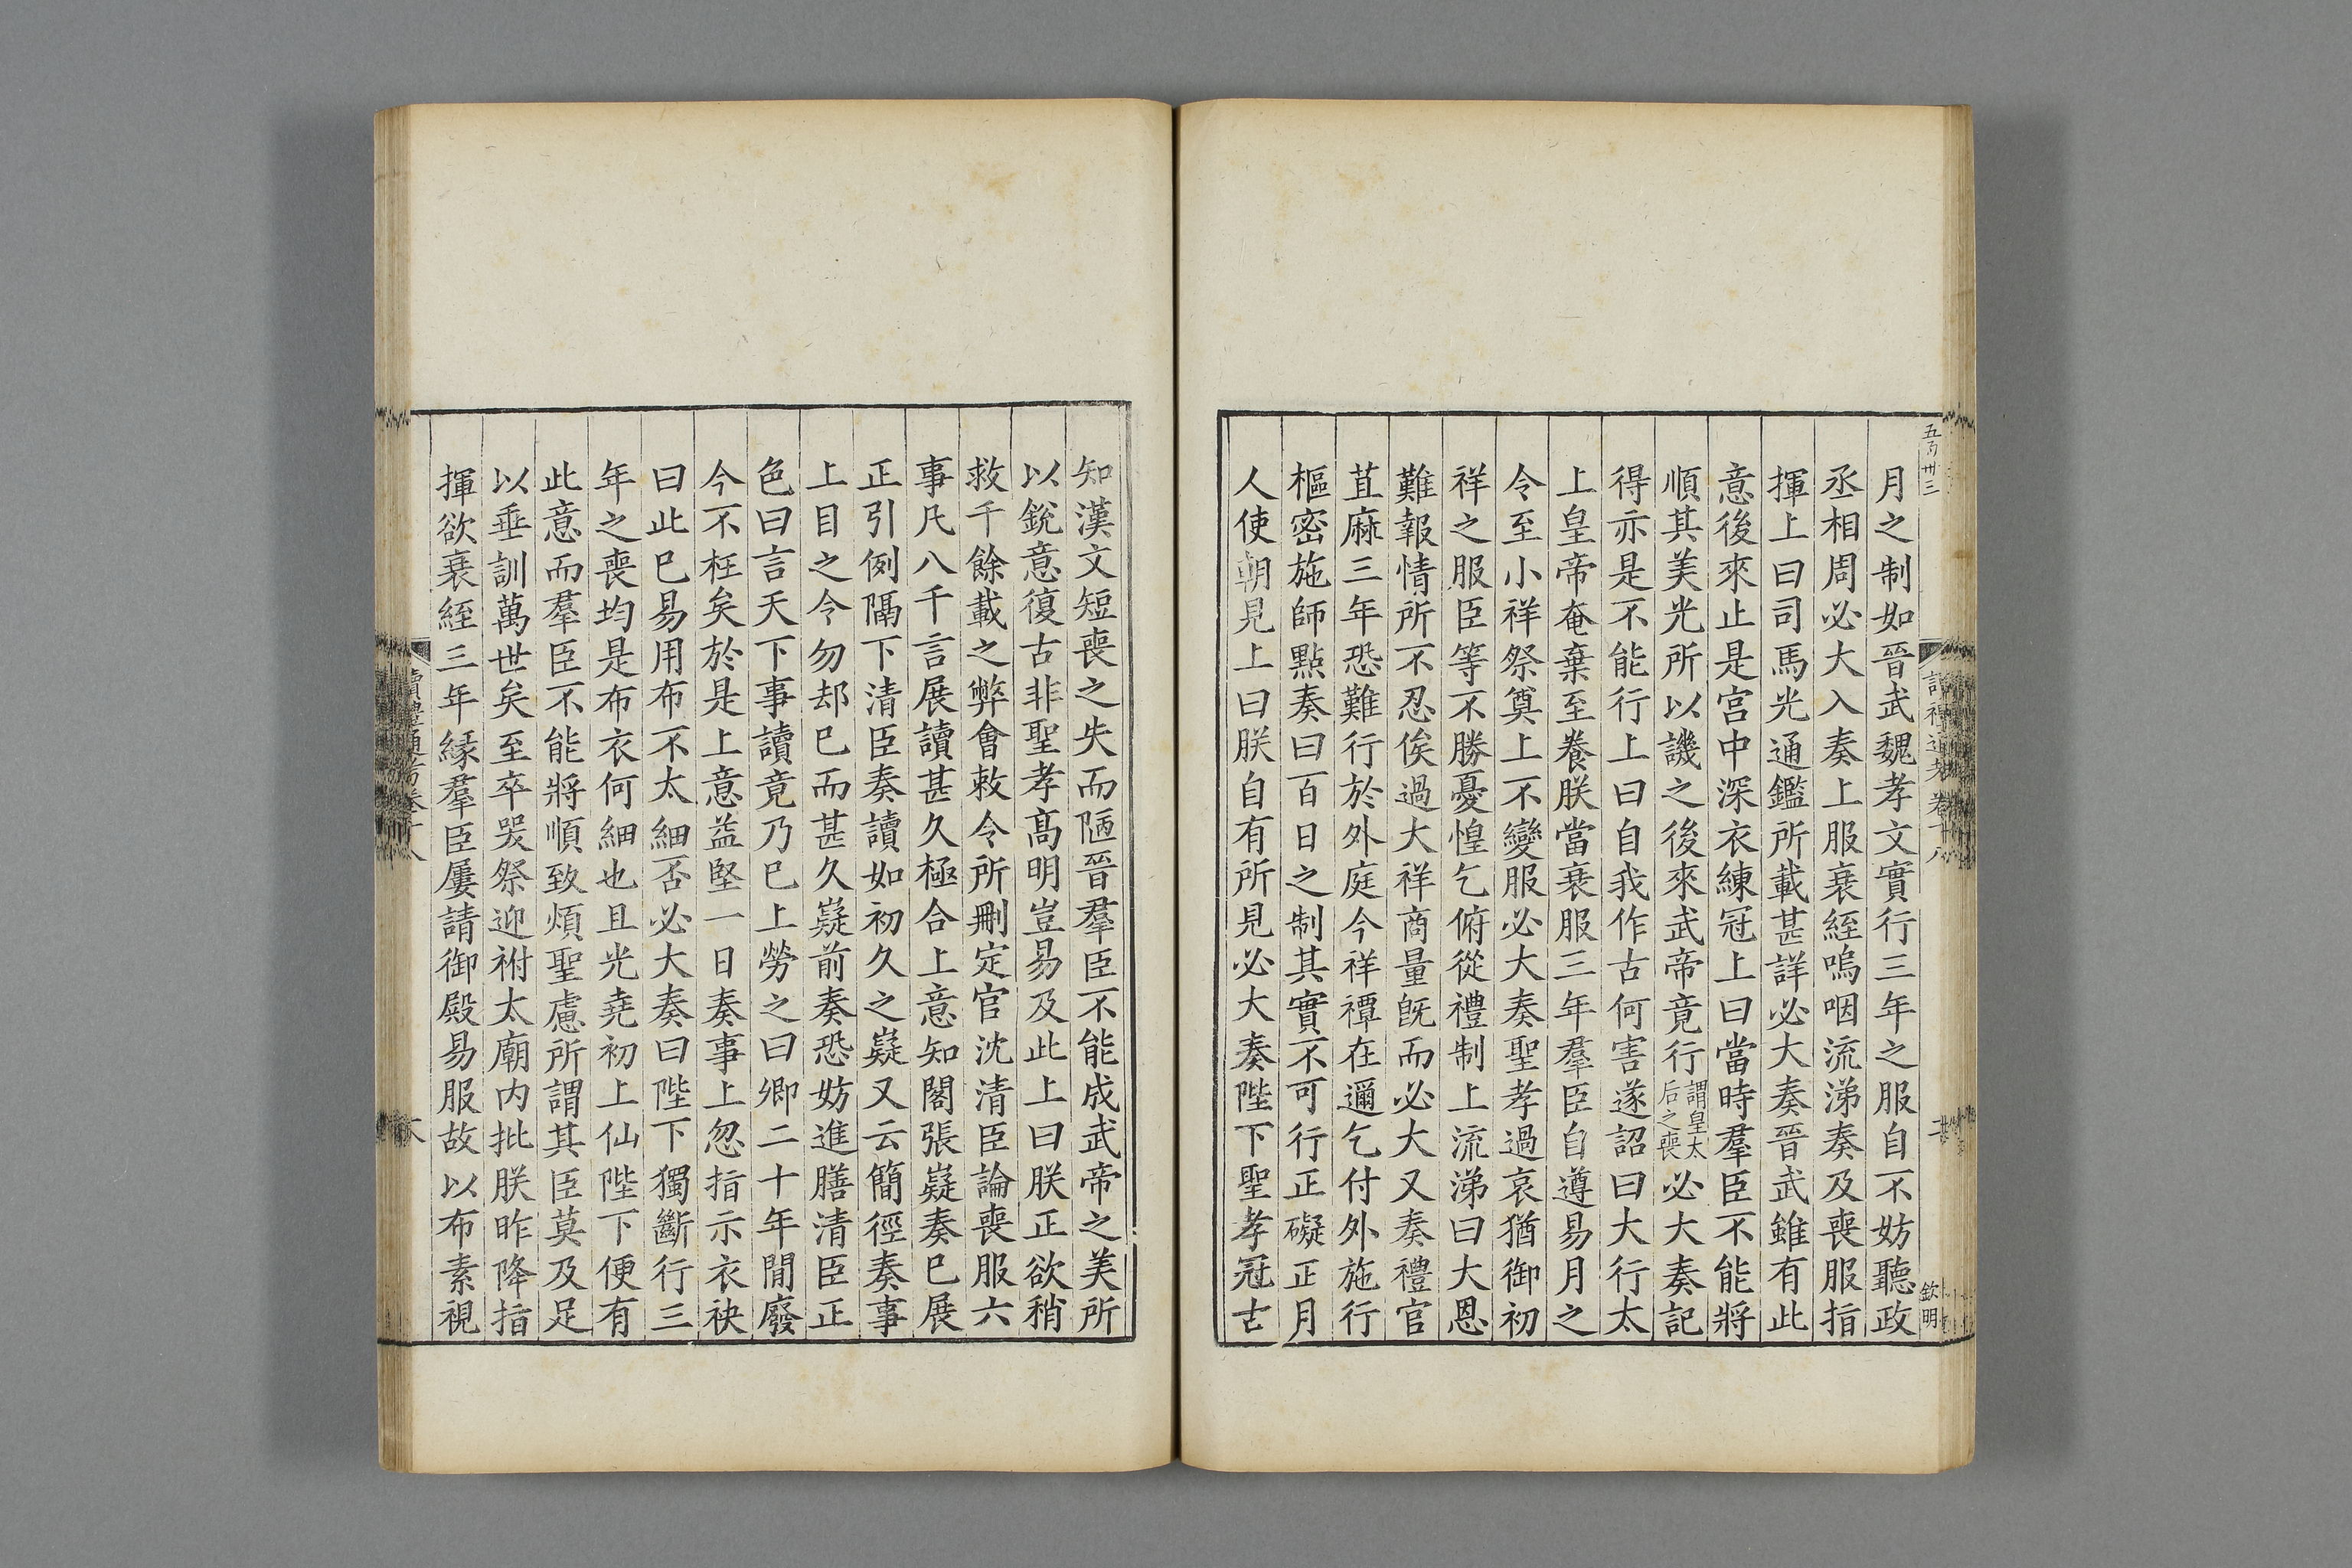 五百卅三
讀禮通考 卷十八
欽明
月之制如晉武魏孝文實行三年之服自不妨聽政
丞相周必大入奏上服衰絰嗚咽流涕奏及喪服指
揮上曰司馬光通鑑所載甚詳必大奏晉武雖有此
意後來止是宮中深衣練冠上曰當時羣臣不能將
順其美光所以譏之後來武帝竟行謂皇太后之喪必大奏記
得亦是不能行上曰自我作古何害遂詔曰大行太
上皇帝奄棄至養朕當衰服三年羣臣自遵易月之
令至小祥祭奠上不變服必大奏聖孝過哀猶御初
祥之服臣等不勝憂惶乞俯從禮制上流涕曰大恩
難報情所不忍俟過大祥商量旣而必大又奏禮官
苴麻三年恐難行於外庭今祥禫在邇乞付外施行
樞密施師點奏曰百日之制其實不可行正礙正月
人使朝見上曰朕自有所見必大奏陛下聖孝冠古
知漢文短喪之失而陋晉羣臣不能成武帝之美所
以銳意復古非聖孝高明豈易及此上曰朕正欲稍
救千餘載之弊會敕令所刪定官沈清臣論喪服六
事凡八千言展讀甚久極合上意知閤張嶷奏已展
正引例隔下清臣奏讀如初久之嶷又云簡徑奏事
上目之令勿却已而甚久嶷前奏恐妨進膳清臣正
色曰言天下事讀竟乃已上勞之曰卿二十年閒廢
今不枉矣於是上意益堅一日奏事上忽指示衣袂
曰此已易用布不太細否必大奏曰陛下獨斷行三
年之喪均是布衣何細也且光堯初上仙陛下便有
此意而羣臣不能將順致煩聖慮所謂其臣莫及足
以垂訓萬世矣至卒哭祭迎祔太廟内批朕昨降指
揮欲衰絰三年緣羣臣屢請御殿易服故以布素視
讀禮通考卷十八